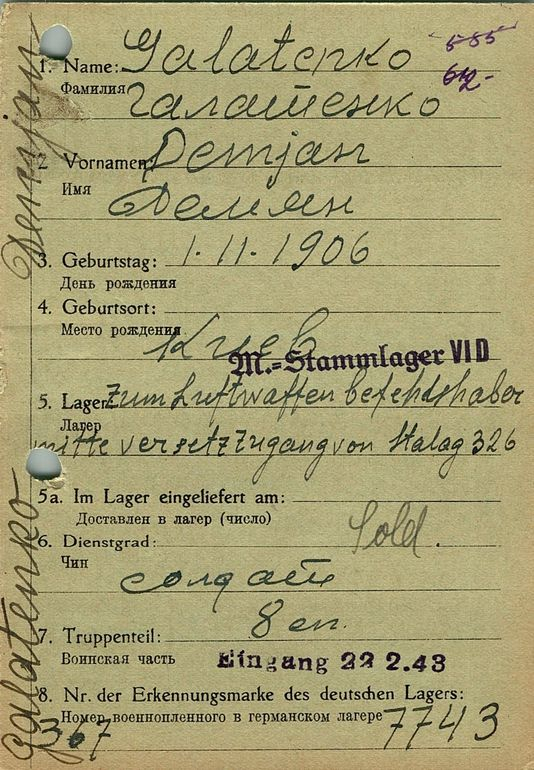 1. Name: Galatenko
585
612-
Фамилия Галатенко
2 Vornamen: Demjan
Имя
Демян
3. Geburtstag: 1. 11. 1906
День рождения
4. Geburtsort:
Место рождения
Киев
M.-Stammlager VI D
5. Lager: zum Luftwaffenbefehlshaber
Лагерь
mitte versetzt Zugang von Stalag 326
5a. Im Lager eingeliefert am:
Доставлен в лагерь (число)
6. Dienstgrad: Sold.
Чин
солдат
7. Truppenteil: 8 сп.
Воинская часть
Eingang 22 2.43
8. Nr. der Erkennungsmarke des deutschen Lagers:
Номер военнопленного в германском лагере 7743
367
Galatenko Demjan